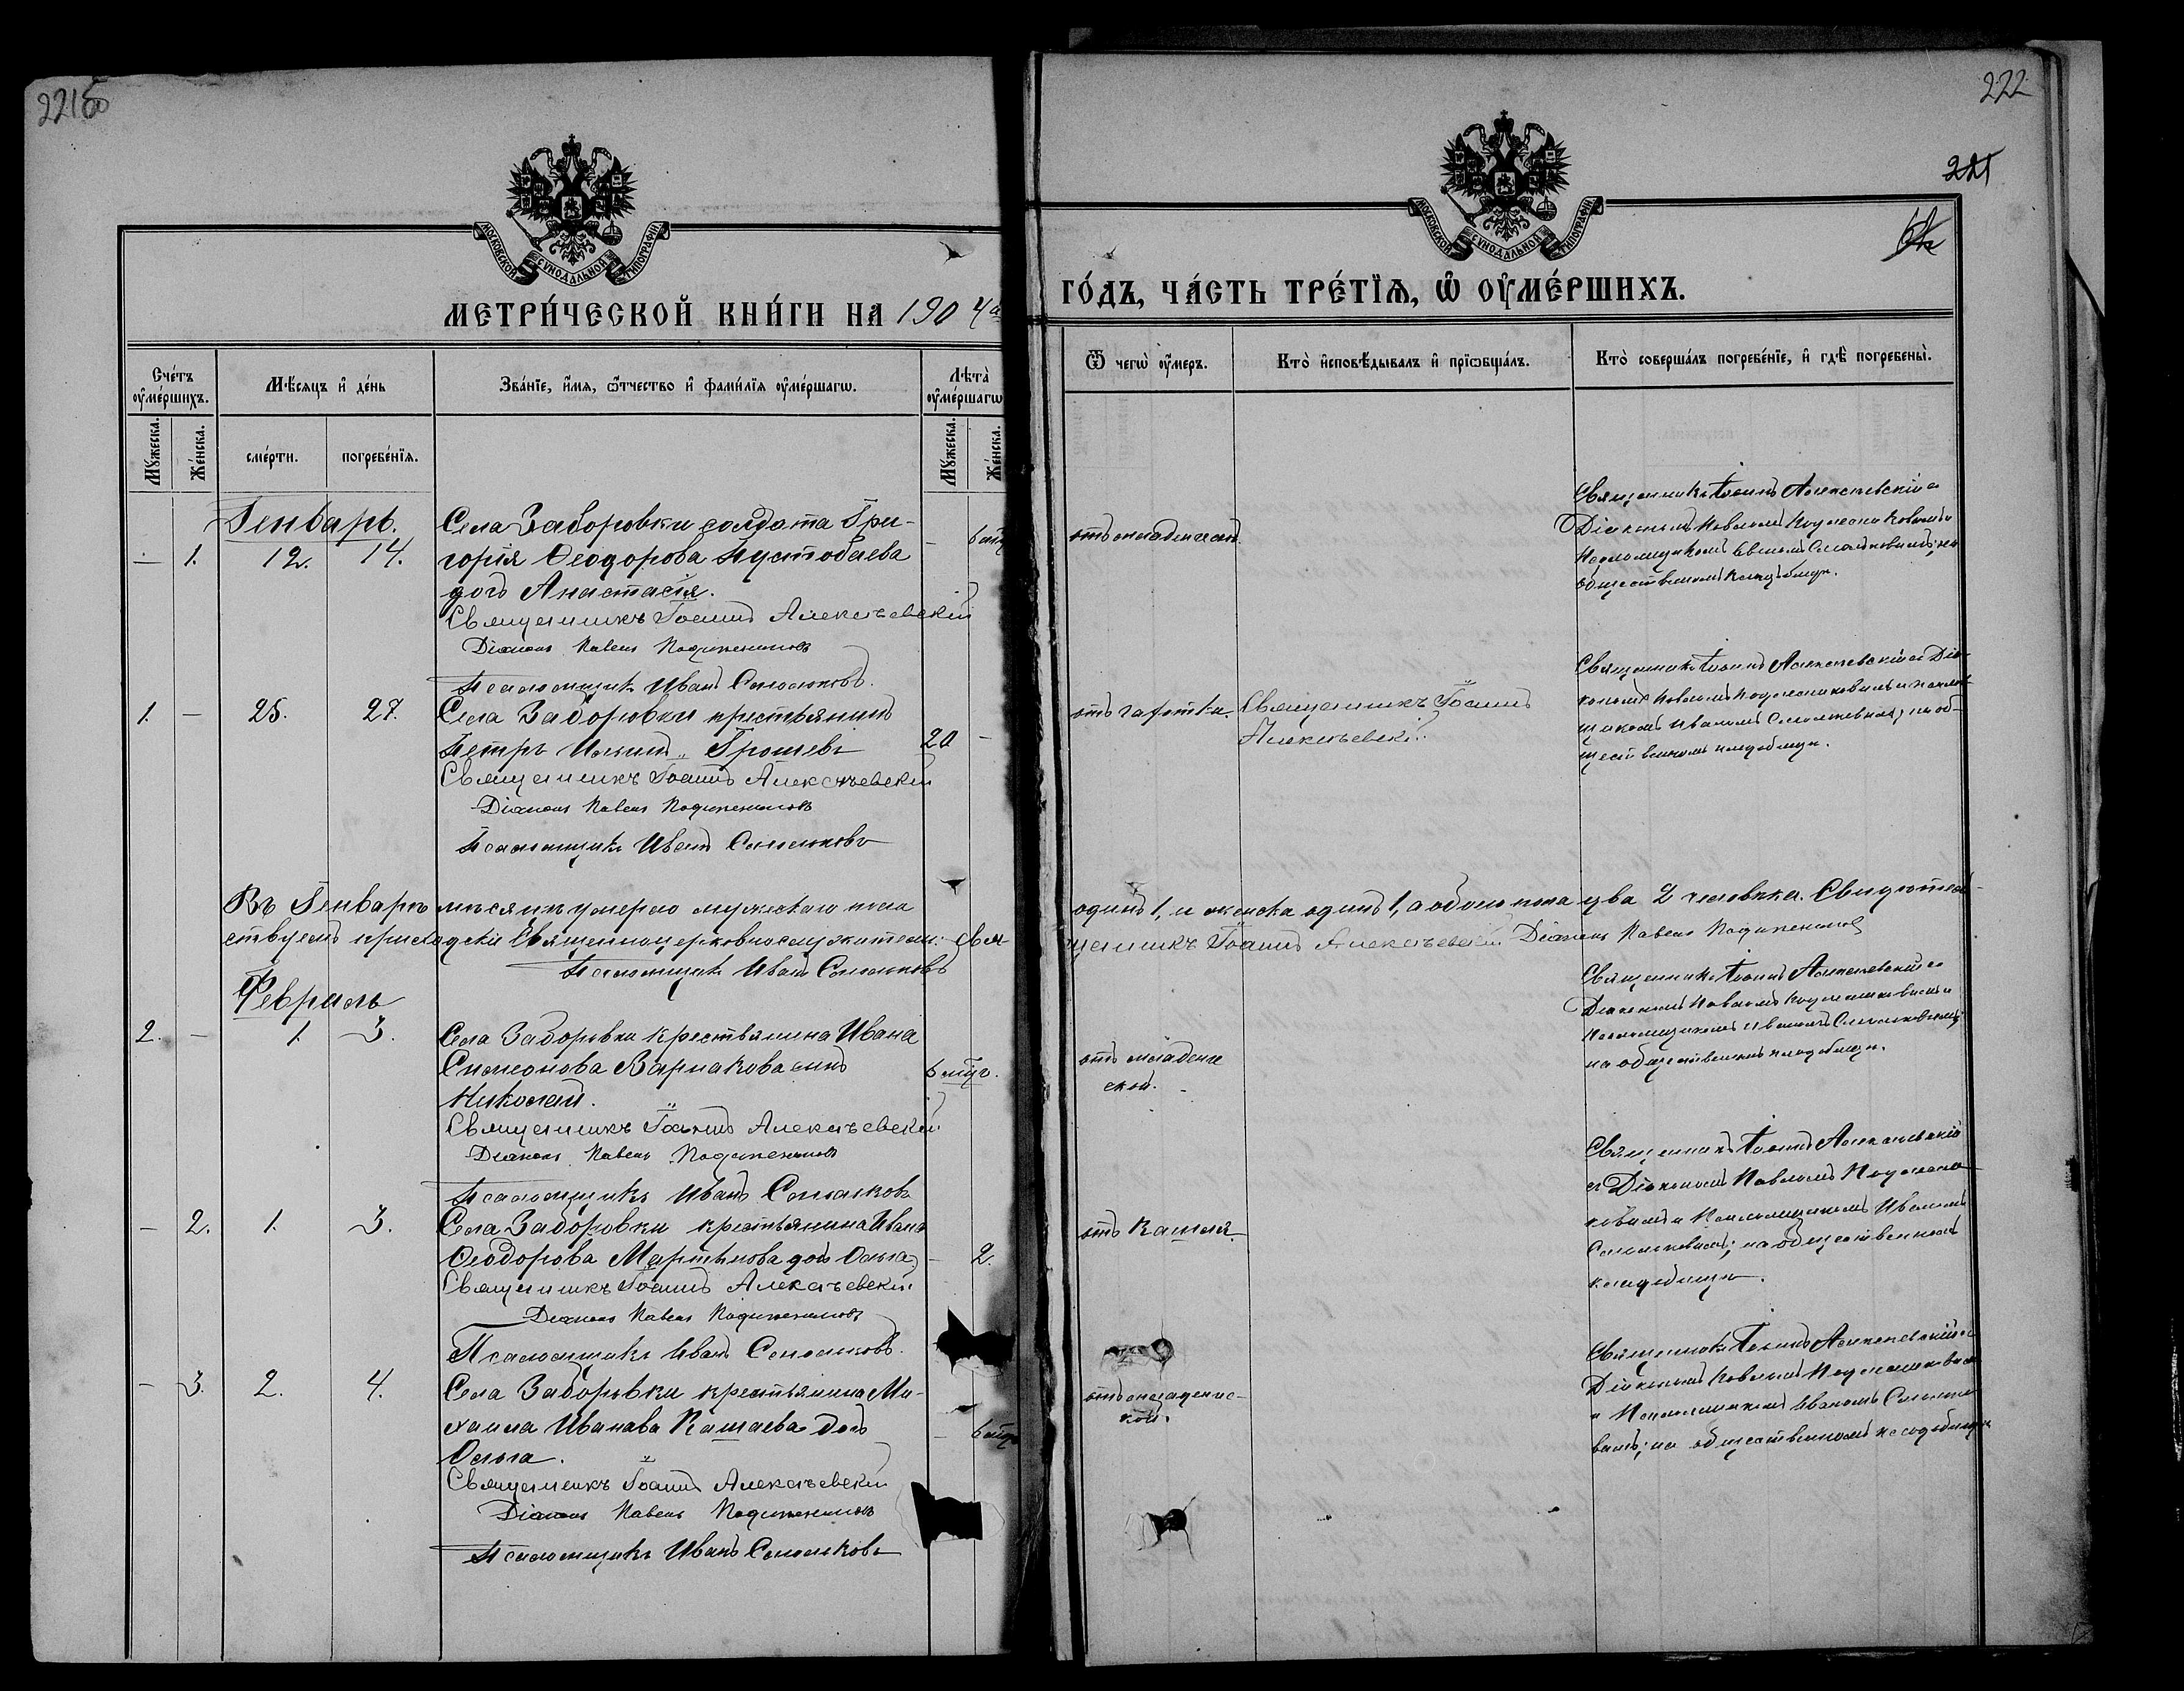 221об
222
221
МОСКОВСКОЙ СѴНОДАЛЬНОЙ ТИПОГРАФІИ
МОСКОВСКОЙ СѴНОДАЛЬНОЙ ТИПОГРАФІИ
МЕТРИ́ЧЕСКОЙ КНИ́ГИ НА 1904й
ГО́ДЪ, ЧА́СТЬ ТРЕ́ТЇѦ, Ѡ ОУ҆МЕ́РШИХЪ.
Сче́тъ оу҆ме́ршихъ.
Мѣ́сяцъ и҆ де́нь
Зва́нїе, и҆́мя, ѻ҆́тчество и҆ фами́лїя оу҆ме́ршагѡ.
Лѣта̀ оу҆ме́ршагѡ
Мꙋ́жеска.
Же́нска.
сме́рти.
погребе́нїя.
Мꙋ́жеска.
Же́нска.
Ѿ чегѡ̀ оу҆́меръ.
Кто̀ и҆сповѣ́дывалъ и҆ прїѡбща́лъ.
Кто̀ соверша́лъ погребе́нїе, и҆ гдѣ̀ погребены̀.
Генварь.
— 1. 12. 14.
Села Заборовки солдата Гри-
горія Ѳеодорова Пустобаева
дочь Анастасія.
Священникъ Іоаннъ Алексѣевскій
Діаконъ Павелъ
Псаломщикъ Иванъ Смольковъ.
— 6 мѣс
отъ младенческ.
Священникъ Іоаннъ Алексѣевскій съ
Діакономъ Павломъ и
Псаломщикомъ Иваномъ Смольковымъ; на
общественномъ кладбищѣ.
1. — 25. 27.
Села Заборовки крестьянинъ
Петръ Грошевъ
Священникъ Іоаннъ Алексѣевскій
Діаконъ Павелъ
Псаломщикъ Иванъ Смольковъ
20 —
отъ чахотки.
Священникъ Іоаннъ
Алексѣевскій.
Священникъ Іоаннъ Алексѣевскій съ Діа-
кономъ Павломъ и псалом-
щикомъ Иваномъ Смольковымъ; на об-
щественномъ кладбищѣ.
Въ Генварѣ мѣсяцѣ умерло мужескаго пола одинъ 1, и женска одинъ 1, а обоего пола два 2 человѣка. Свидѣтель-
ствуемъ приходскіе Священноцерковнослужители: Свя-щенникъ Іоаннъ Алексѣевскій Діаконъ Павелъ
Псаломщикъ Иванъ Смольковъ
Февраль
2. — 1. 3.
Села Заборовки крестьянина Ивана
Симеонова сынъ
Николай.
Священникъ Іоаннъ Алексѣевскій
Діаконъ Павелъ
Псаломщикъ Иванъ Смольковъ
6 мѣс.
отъ младенче
ской.
Священникъ Іоаннъ Алексѣевскій съ
Діакономъ Павломъ и
Псаломщикомъ Иваномъ Смольковымъ;
на общественномъ кладбищѣ.
— 2. 1. 3.
Села Заборовки крестьянина Ивана
Ѳеодорова Мартынова дочь Ольга,
Священникъ Іоаннъ Алексѣевскій
Діаконъ Павелъ
Псаломщикъ Иванъ Смольковъ.
— 2.
отъ кашля
Священникъ Іоаннъ Алексѣевскій
съ Діакономъ Павломъ
и Псаломщикомъ Иваномъ
Смольковымъ; на общественномъ
кладбищѣ.
— 3. 2. 4.
Села Заборовки крестьянина Ми-
хаила Иванова Кашаева дочь
Ольга.
Священникъ Іоаннъ Алексѣевскій
Діаконъ Павелъ
Псаломщикъ Иванъ Смольковъ
— 6 мѣс
отъ младенчес-
кой.
Священникъ Іоаннъ Алексѣевскій съ
Діакономъ Павломъ
и Псаломщикомъ Иваномъ Смолько-
вымъ; на общественномъ кладбищѣ